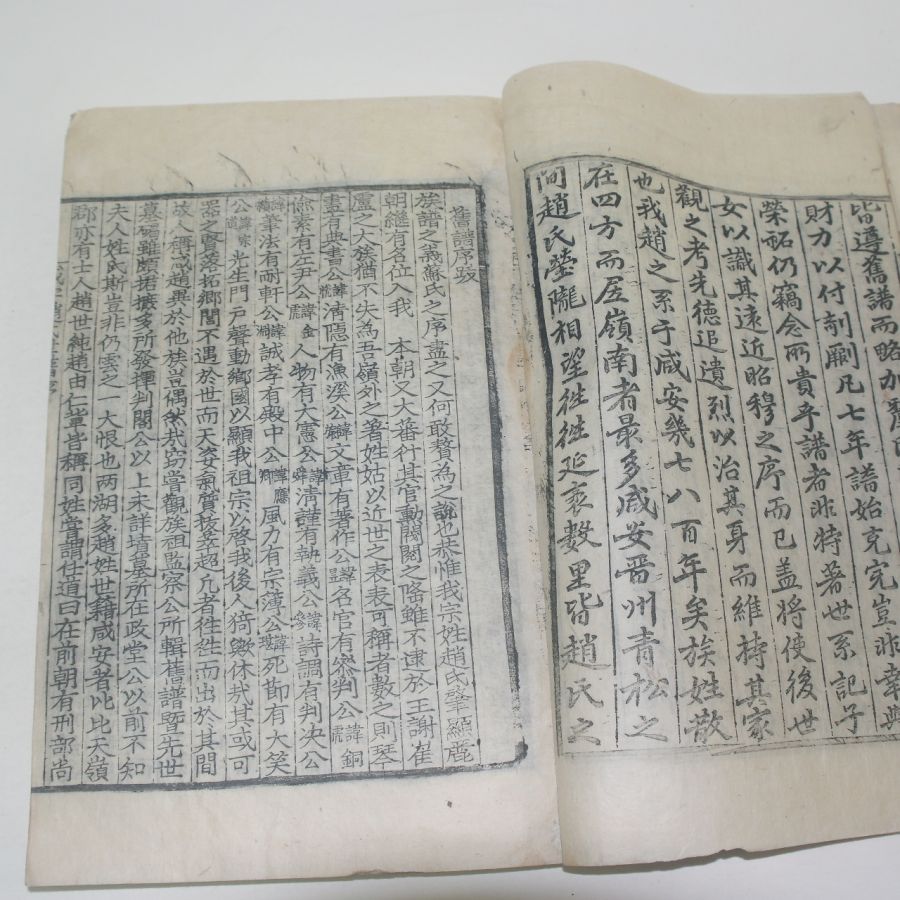 皆遵舊譜而略加
財力以付剞劂凡七年譜始克完豈非幸與
榮祏仍竊念所貴乎譜者非特著世系記子
女以識其遠近昭穆之序而已盖將使後世
觀之考先德追遺烈以治其身而維持其家
也我趙之系于咸安幾七八百年矣族姓散
在四方而居嶺南者最多咸安晋州青松之
間趙氏塋隴相望徃徃延袤數里皆趙氏之
舊譜序跋
族譜之義蘇氏之序盡之又何敢贅為之說也恭惟我宗姓趙氏肇顯麗
朝継有名位入我 本朝又大蕃衍其官勳閥閱之隆雖不逮於王謝崔
盧之大族猶不失為吾嶺外之著姓姑以近世之表表可稱者數之則琴
書有典書公諱 清隠有漁溪公諱 文章有著作公諱 名官有叅判公諱銅
㡳素有左尹公諱金 人物有大憲公諱舜 清謹有執義公諱 詩調有判决公
諱 筆法有耐軒公諱淵 誠孝有殿中公諱應卿 風力有宗簿公諱 死節有大笑
公諱宗道 光生門戸聲動鄉國以顯我祖宗以啓我後人猗歟休㦲其或可
器之賢落拓鄉閭不遇於世而天姿氣質拔萃超凡者徃徃而出於其間
故人稱咸趙與於他族豈偶然㦲窃甞觀族祖監察公所輯舊譜曁先世
墓碣雖頗捃摭多所發揮判閣公以上未詳墳墓所在政堂公以前不知
夫人姓氏斯豈非仍雲之一大恨也两湖多趙姓世籍咸安者比比天嶺
郡亦有士人趙世純趙由仁軰皆稱同姓甞謂任道曰在前朝有刑部尚